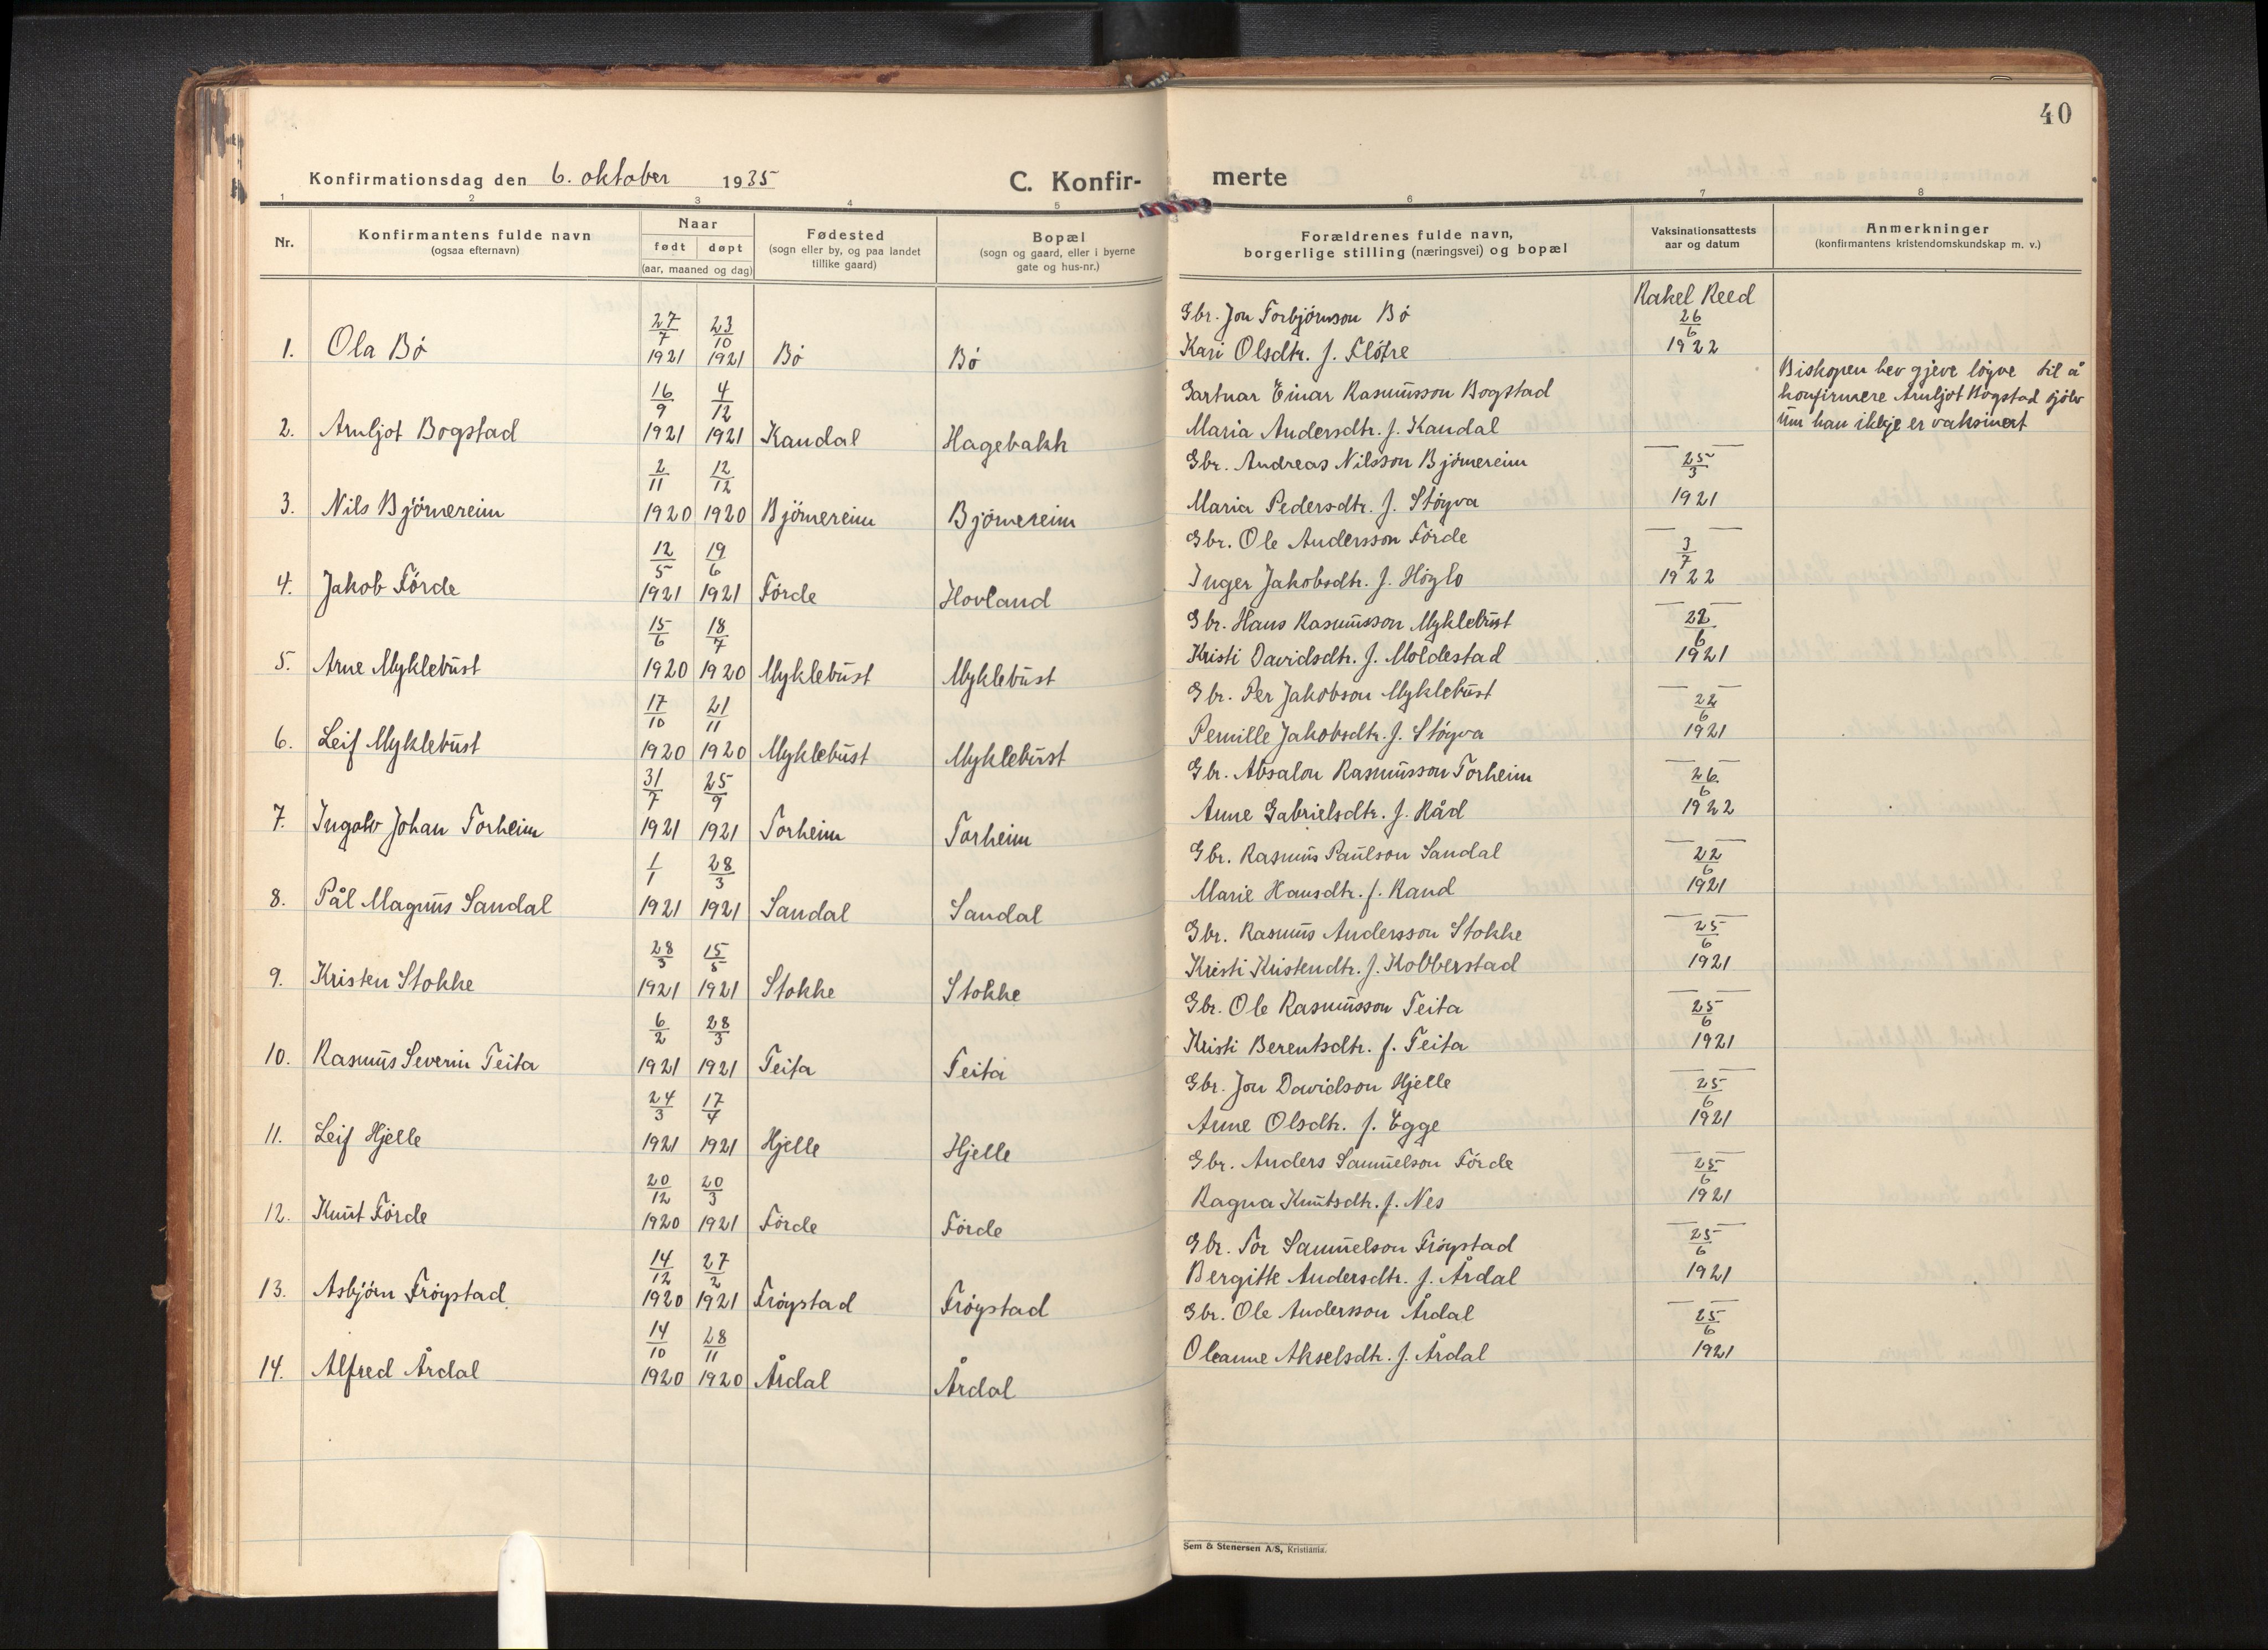 40
Konfirmationsdag den 6. oktober 1935 C. Konfir- merte
1 2 3 4 5 6 7 8
Nr. Konfirmantens fulde navn (ogsaa efternavn) Naar født døpt (aar, maaned og dag) Fødested (sogn eller by, og paa landet tillike gaard) Bopæl (sogn og gaard, eller i byerne gate og hus-nr.) Forældrenes fulde navn, borgerlige stilling (næringsvei) og bopæl Vaksinationsattests aar og datum Anmerkninger (konfirmantens kristendomskundskap m. v.)
Gbr. Jon Torbjörnson Bö Rakel Reed
27/7 23/10 26/6
1. Ola Bö 1921 1921 Bö Bö Kari Olsdtr. f. Flötre 1922
16/9 4/12 Gartnar Einar Rasmusson Bogstad Biskopen hev gjeve löyve til å
konfirmere Arnljot Bogstad sjölv
2. Arnljot Bogstad 1921 1921 Kandal Hagebakk Maria Andersdtr. f. Kandal um han ikkje er vaksinert
2/11 12/12 Gbr. Andreas Nilsson Björnereim 25/3
3. Nils Björnereim 1920 1920 Björnereim Björnereim Maria Pedersdtr. f. Stöyva 1921
12/5 19/6 Gbr. Ole Andersson Förde — 3/7 —
4. Jakob Förde 1921 1921 Förde Hovland Inger Jakobsdtr. f. Höglo 1922
15/6 18/7 Gbr. Hans Rasmusson Myklebust — 22/6 —
5. Arne Myklebust 1920 1920 Myklebust Myklebust Kristi Davidsdtr. f. Moldestad 1921
17/10 21/11 Gbr. Per Jakobson Myklebust — 22/6 —
6. Leif Myklebust 1920 1920 Myklebust Myklebust Pernille Jakobsdtr. f. Stöyva 1921
31/7 25/9 Gbr. Absalon Rasmusson Torheim — 26/6 —
7. Ingolv Johan Torheim 1921 1921 Torheim Torheim Anne Gabrielsdtr. f. Råd 1922
1/1 28/3 Gbr. Rasmus Paulson Sandal — 22/6 —
8. Pål Magnus Sandal 1921 1921 Sandal Sandal Marie Hansdtr. f. Rand 1921
28/3 15/5 Gbr. Rasmus Andersson Stokke — 25/6 —
9. Kristen Stokke 1921 1921 Stokke Stokke Kristi Kristendtr. f. Kobberstad 1921
6/2 28/3 Gbr. Ole Rasmusson Teita — 25/6 —
10. Rasmus Severin Teita 1921 1921 Teita Teita Kristi Berentsdtr. f. Teita 1921
24/3 17/4 Gbr. Jon Davidson Hjelle — 25/6 —
11. Leif Hjelle 1921 1921 Hjelle Hjelle Anne Olsdtr. f. Egge 1921
20/12 20/3 Gbr. Anders Samuelson Förde — 25/6 —
12. Knut Förde 1920 1921 Förde Förde Ragna Knutsdtr. f. Nes 1921
14/12 27/2 Gbr. Tor Samuelson Fröystad — 25/6 —
13. Asbjörn Fröystad 1920 1921 Fröystad Fröystad Bergitte Andersdtr. f. Årdal 1921
14/10 28/11 Gbr. Ole Andersson Årdal — 25/6 —
14. Alfred Årdal 1920 1920 Årdal Årdal Oleanne Akselsdtr. f. Årdal 1921
Sem & Stenersen A/S, Kristiania.